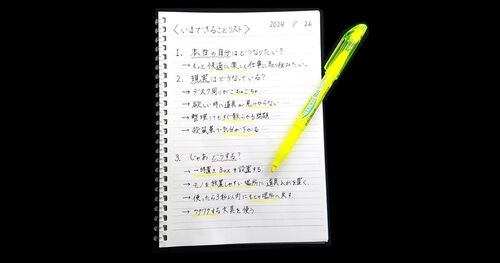 〈いまできることリスト〉 2024 8 26
1. 本当の自分はどうなりたい？
→ もっと快適に楽しく仕事に取り組みたい。
2. 現実はどうなっている？
→ デスク周りがごちゃごちゃ
→ 欲しい時に道具が見つからない
→ 整理してもすぐ散らかる問題
→ 殺風景で気分が下がる
3. じゃあどうする？
→ 一時置きBoxを設置する
→ モノを放置しやすい場所に道具入れを置く
→ 使ったら3秒以内にもとの場所へ戻す
→ ワクワクする文具を使う